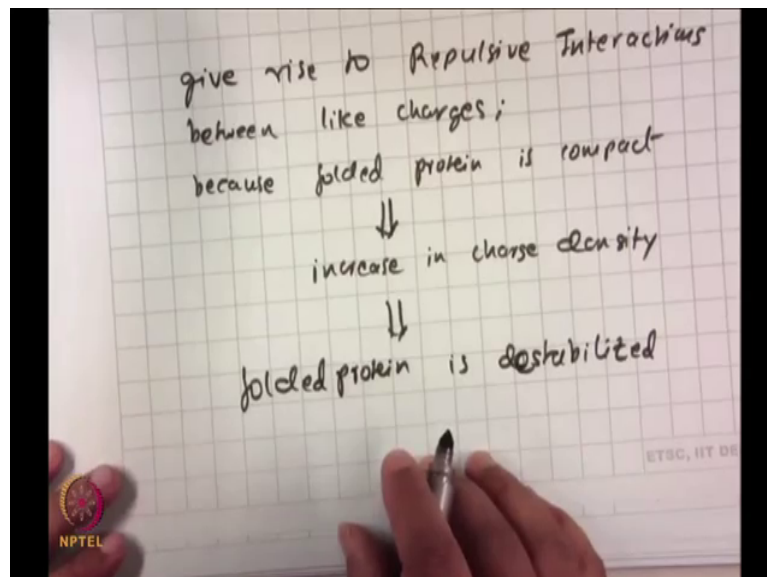 give rise to Repulsive Interactions
between like charges;
because folded protein is compact
⇓
increase in charge density
⇓
folded protein is destabilized
ETSC, IIT DE
NPTEL